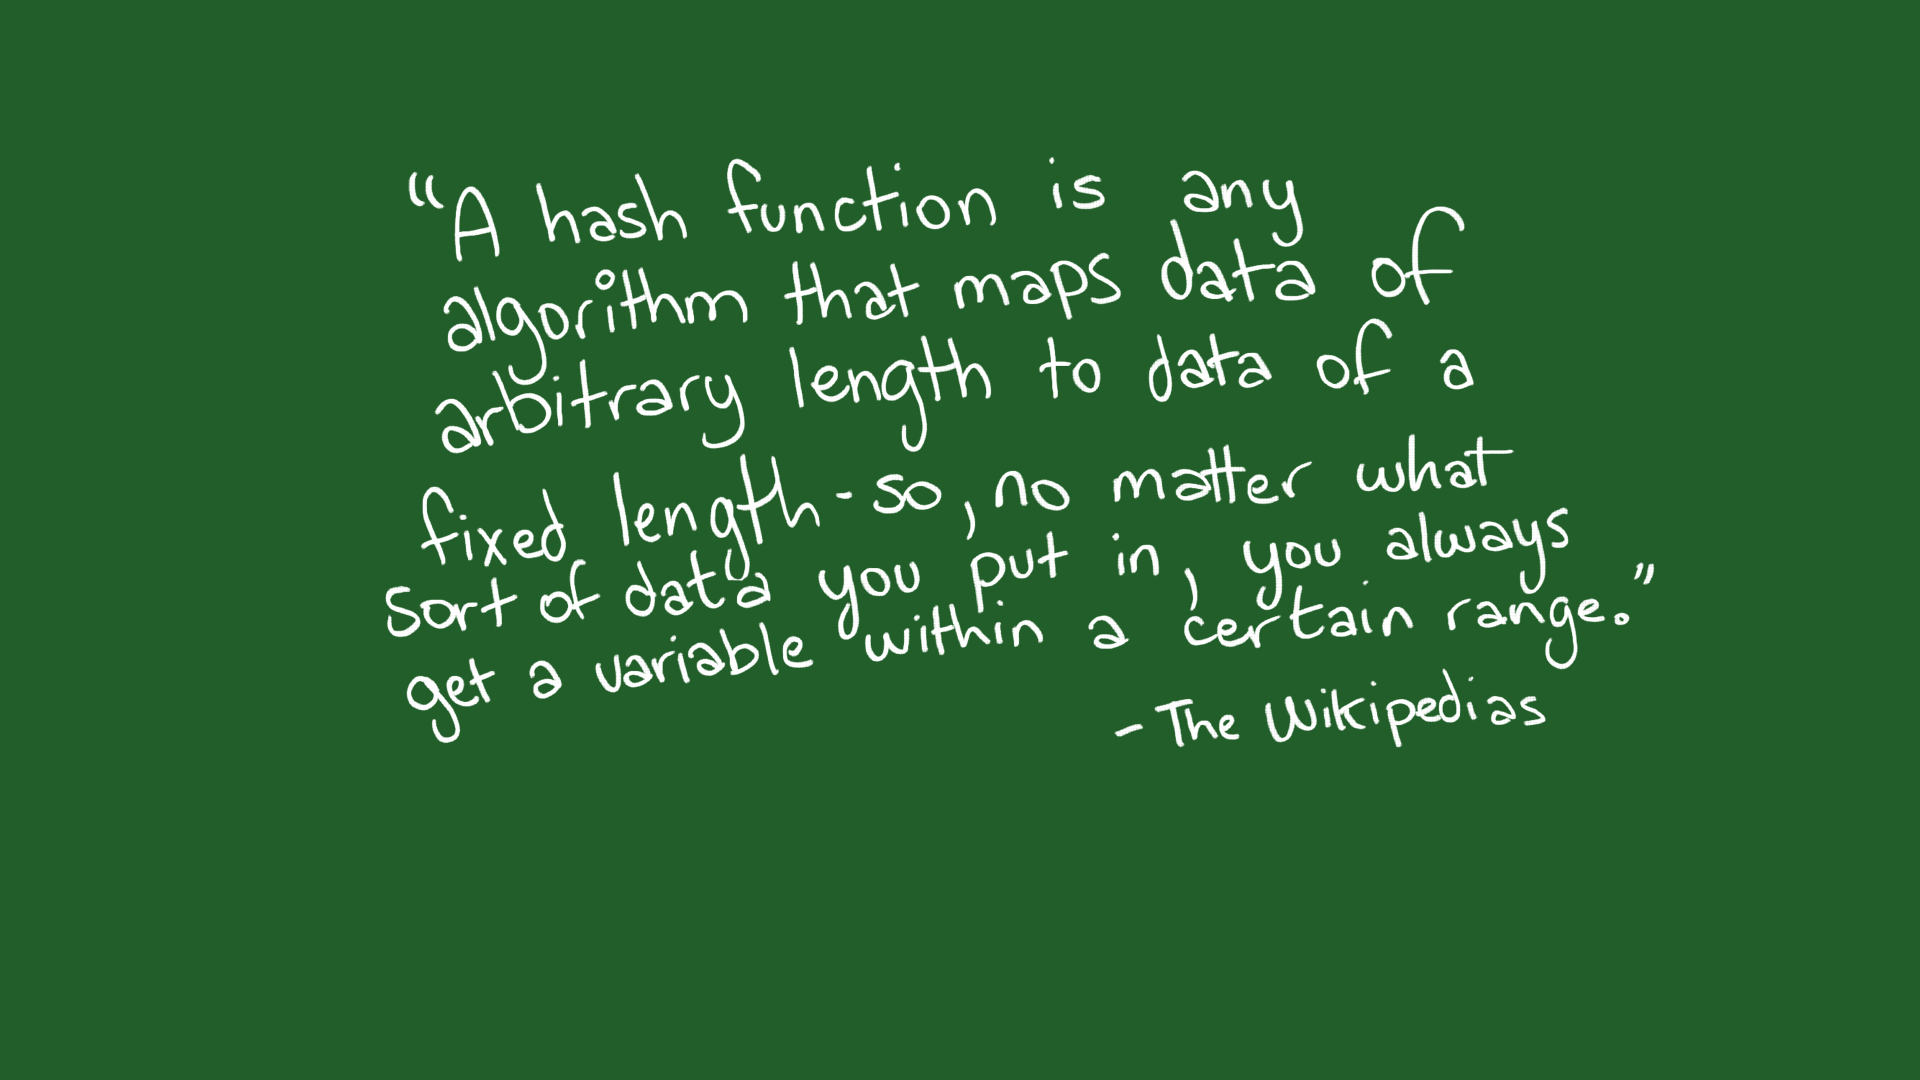 “A hash function is any
algorithm that maps data of
arbitrary length to data of a
fixed length - so, no matter what
sort of data you put in, you always
get a variable within a certain range.”
- The Wikipedias